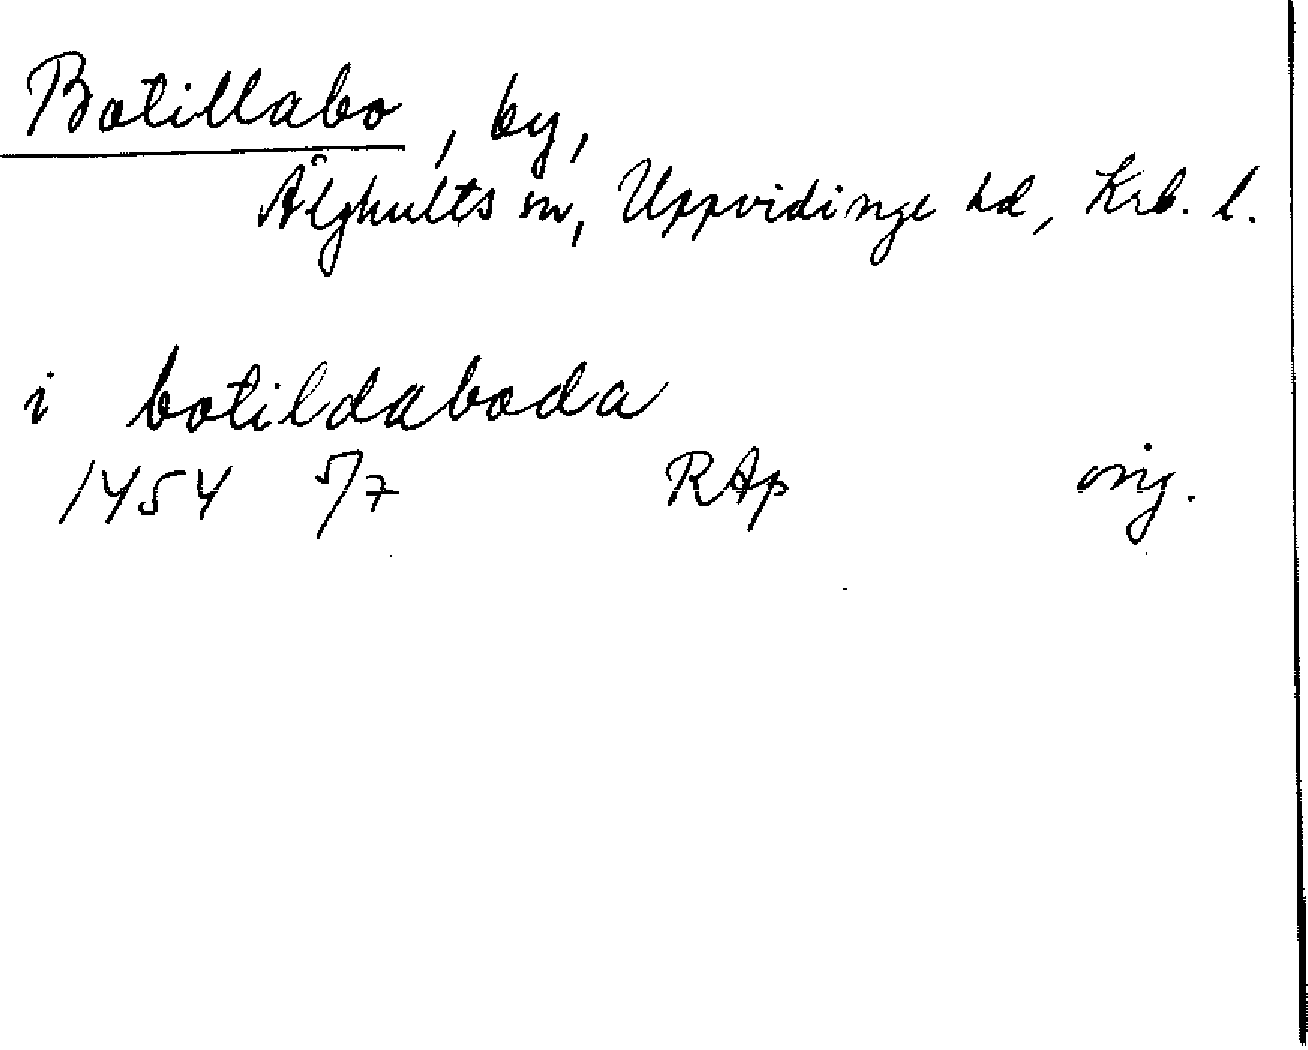 Botillabo, by,
Ålghults sn, Uppvidinge hd, Krb. l.
i botildaboda
1454 5/7 RAp orig.